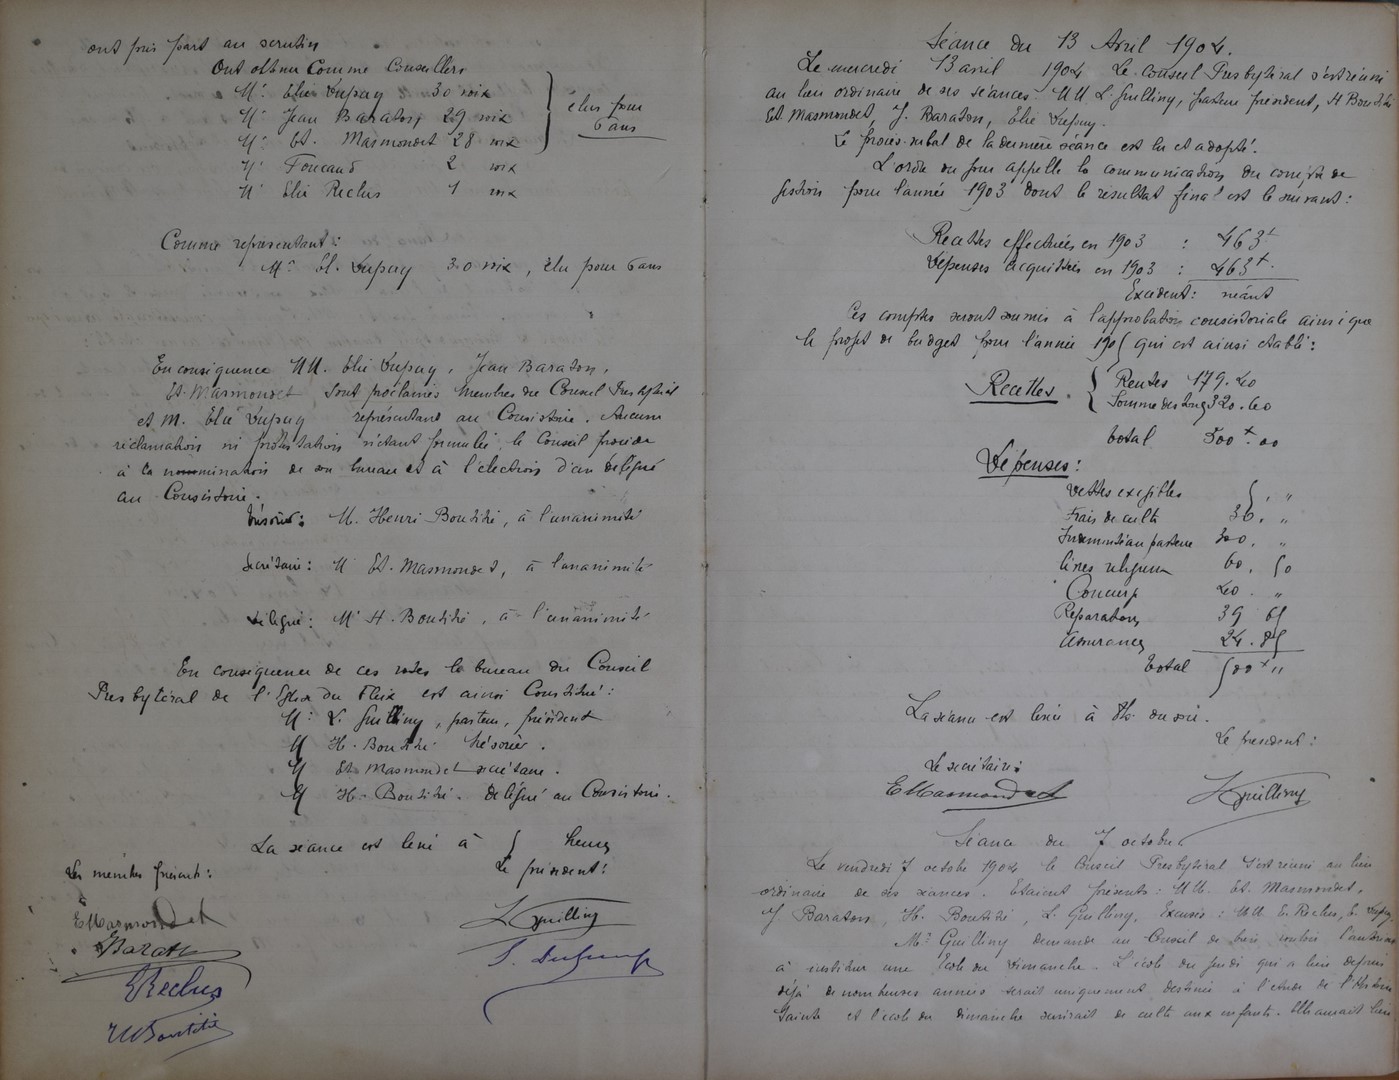 ont pris part au scrutin
Ont obtenu Comme Conseillers
Mr. Elie Dupuy 30 voix
Mr. Jean Baraton, 29 voix
Mr. Et. Masmondet 28 voix
élus pour
6 ans
Mr Foucaud 2 voix
Mr Elie Reclus 1 voix
Comme représentant:
Mr. El. Dupuy 30 voix, élu pour 6 ans
En conséquence MM. Elie Dupuy, Jean Baraton,
Et. Masmondet sont proclamés membres du Conseil Presbytéral
et M. Elie Dupuy représentant au Consistoire. Aucune
réclamation ni protestation n'étant formulée le Conseil procède
à la nomination de son bureau et à l'élection d'un délégué
au Consistoire.
Trésorier: M. Henri Boutitié, à l'unanimité
Secrétaire: M Et. Masmondet, à l'unanimité
Délégué: Mr H. Boutitié, à l'unanimité
En conséquence de ces votes le bureau du Conseil
Presbytéral de l'Eglise du Fleix est ainsi Constitué:
M: L. Guilling, pasteur, président
M H. Boutitié trésorier.
M Et Masmondet secrétaire.
M H. Boutitié. délégué au Consistoire.
La séance est levé à 5 heures
Les membres présents:
Le président:
EMasmondet
LGuilling
Baraton
EReclus
HBoutitié
Séance du 13 Avril 1904.
Le mercredi 13 avril 1904 Le Conseil Presbytéral s'est réuni
au lieu ordinaire de ses séances. MM L. Guilling, pasteur président, H Boutitié
Et Masmondet, J. Baraton, Elie Dupuy.
Le procès-verbal de la dernière séance est lu et adopté.
L'ordre du jour appelle la communication du compte de
gestion pour l'année 1903 dont le résultat final est le suivant:
Recettes effectuées en 1903 : 463f
Dépenses acquittées en 1903 : 463f.
Excédent: néant
Ces comptes seront soumis à l'approbation consistoriale ainsi que
le projet de budget pour l'année 1905 qui est ainsi établi:
Recettes. Rentes 179.40
Somme des 320.60
total 500f.00
Dépenses:
Dettes exigibles 5. "
Frais de culte 36. "
Indemnité au pasteur 300. "
Livres religieux 60. 50
Concierge "
Réparations 39 65
Assurances 24. 85
total 500f "
La séance est levée à 8h. du soir.
Le président:
Le secrétaire:
EMasmondet
LGuilling
Séance du 7 octobre
Le vendredi 7 octobre 1904 le Conseil Presbytéral s'est réuni au lieu
ordinaire de ses séances. Etaient présents: MM. Et. Masmondet,
J Baraton, H. Boutitié, L. Guilling. Excusés: MM E. Reclus, E. Dupuy.
Mr Guilling demande au Conseil de bien vouloir l'autoriser
à instituer une Ecole du Dimanche. L'école du jeudi qui a lieu depuis
déjà de nombreuses années serait uniquement destinée à l'étude de l'Histoire
Sainte et l'école du dimanche servirait de culte aux enfants. Elle aurait lieu